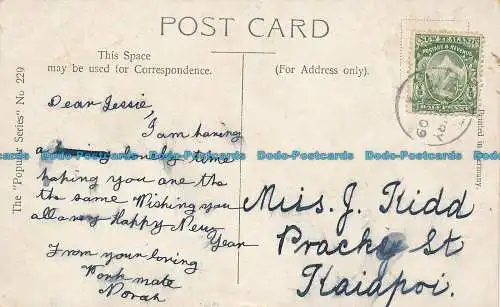 POST CARD
This Space
may be used for Correspondence.
(For Address only).
The "Popular Series" No 229
Printed in Germany.
NEW ZEALAND
POSTAGE & REVENUE
HALF PENNY
09
Dear Jessie,
I am having
a lovely time
hoping you are the
the same Wishing you
all a very Happy New
Year
From your loving
Work mate
Norah
Miss. J. Kidd
Pracky St
Kaiapoi.
Dodo-Postcards Dodo-Postcards Dodo-Postcards Dodo-Postcards
Dodo-Postcards Dodo-Postcards Dodo-Postcards Dodo-Postcards